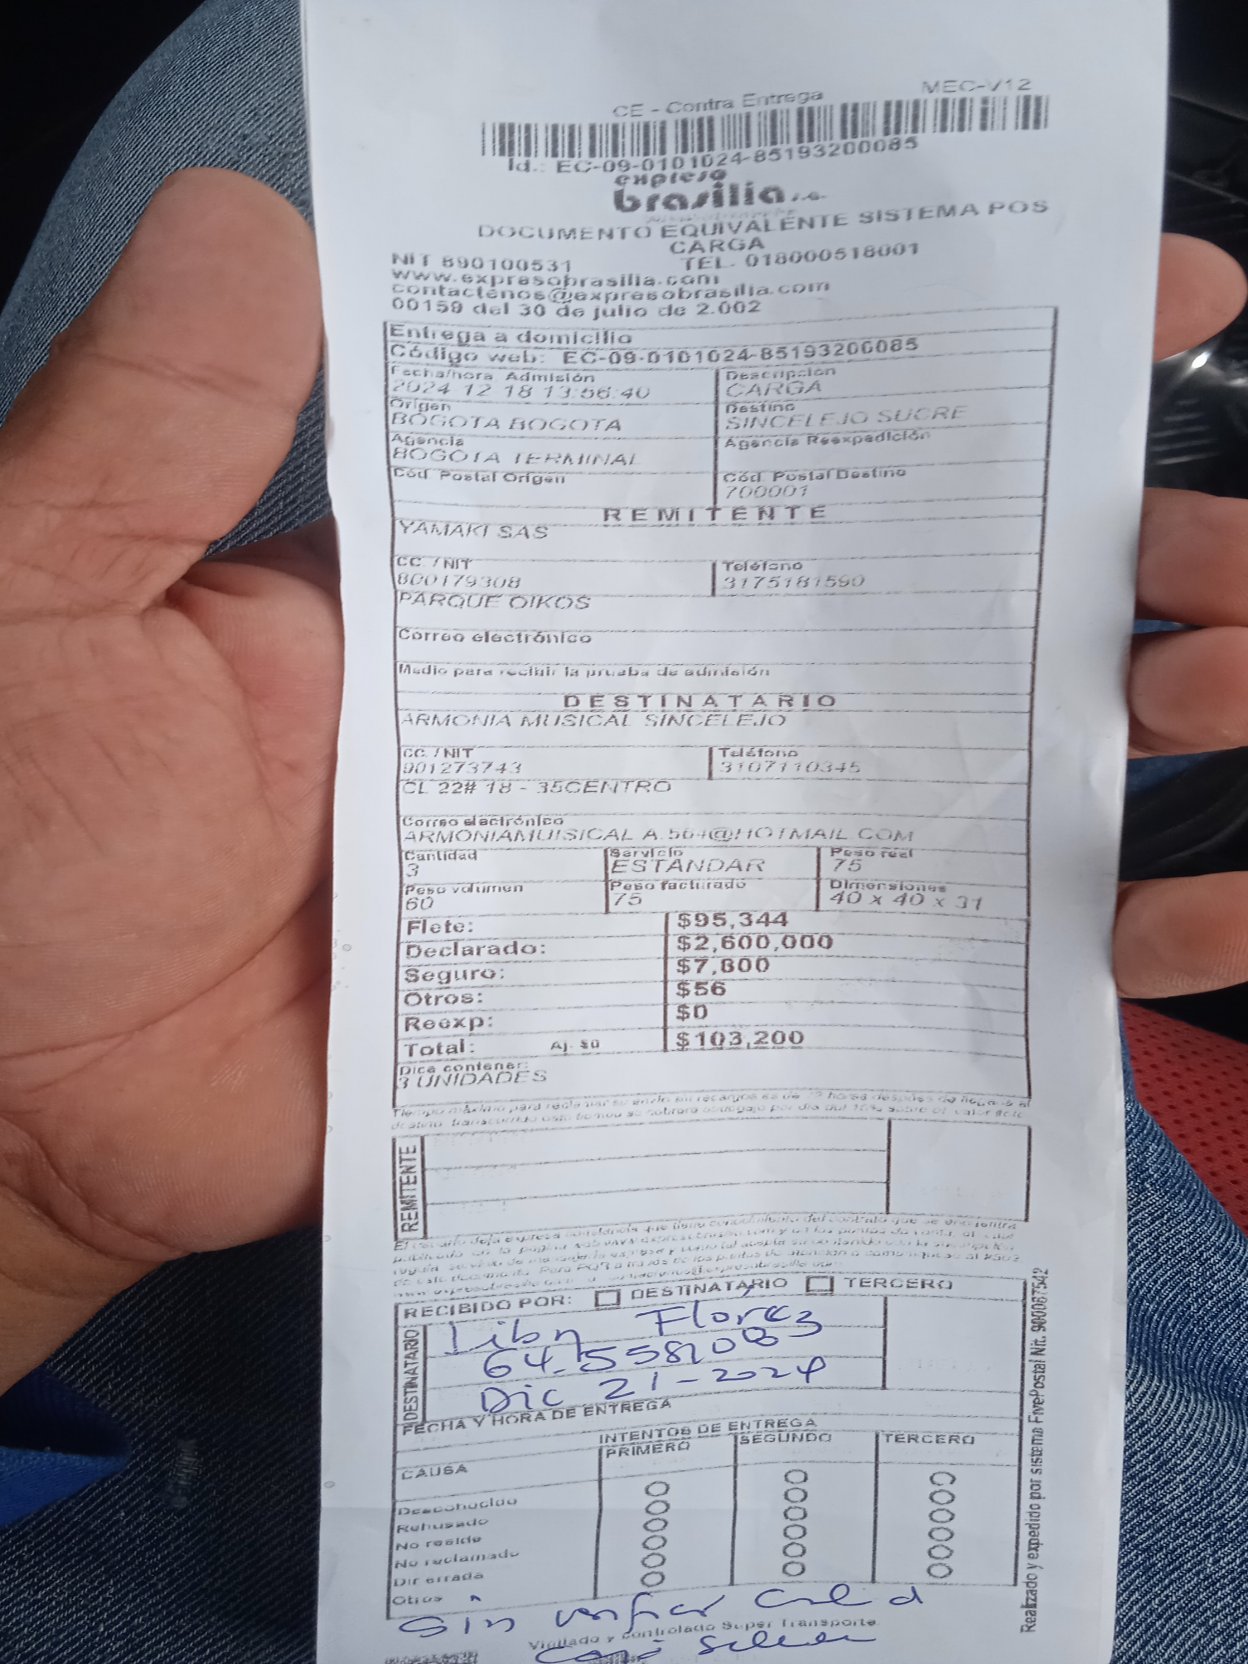 CE - Contra Entrega MEC-V12
Id.: EC-09-0101024-85193200085
expreso
brasilia s.a.
DOCUMENTO EQUIVALENTE SISTEMA POS
CARGA
NIT 890100531 TEL. 018000518001
www.expresobrasilia.com
contactenos@expresobrasilia.com
00159 del 30 de julio de 2.002
Entrega a domicilio
Código web: EC-09-0101024-85193200085
Fecha/hora Admisión Descripción
2024-12-18 13:56:40 CARGA
Origen Destino
BOGOTA BOGOTA SINCELEJO SUCRE
Agencia Agencia Reexpedición
BOGOTA TERMINAL
Cód. Postal Origen Cód. Postal Destino
700001
REMITENTE
YAMAKI SAS
CC. / NIT Teléfono
800179308 3175181590
PARQUE OIKOS
Correo electrónico
Medio para recibir la prueba de admisión
DESTINATARIO
ARMONIA MUSICAL SINCELEJO
CC. / NIT Teléfono
901273743 3107110345
CL 22# 18 - 35CENTRO
Correo electrónico
ARMONIAMUISICAL A.504@HOTMAIL COM
Cantidad Servicio Peso real
3 ESTANDAR 75
Peso volumen Peso facturado Dimensiones
60 75 40 x 40 x 31
Flete: $95,344
Declarado: $2,600,000
Seguro: $7,800
Otros: $56
Reexp: $0
Total: Aj. $0 $103,200
Dice contener:
3 UNIDADES
REMITENTE
RECIBIDO POR: DESTINATARIO TERCERO
DESTINATARIO
Flórez
Dic 21-2024
FECHA Y HORA DE ENTREGA
INTENTOS DE ENTREGA
CAUSA PRIMERO SEGUNDO TERCERO
Desconocido
Rehusado
No reside
No reclamado
Dir errada
Otros
Sin verificar
Vigilado y Controlado Super Transporte
Realizado y expedido por sistema FivePostal Nit. 900087542